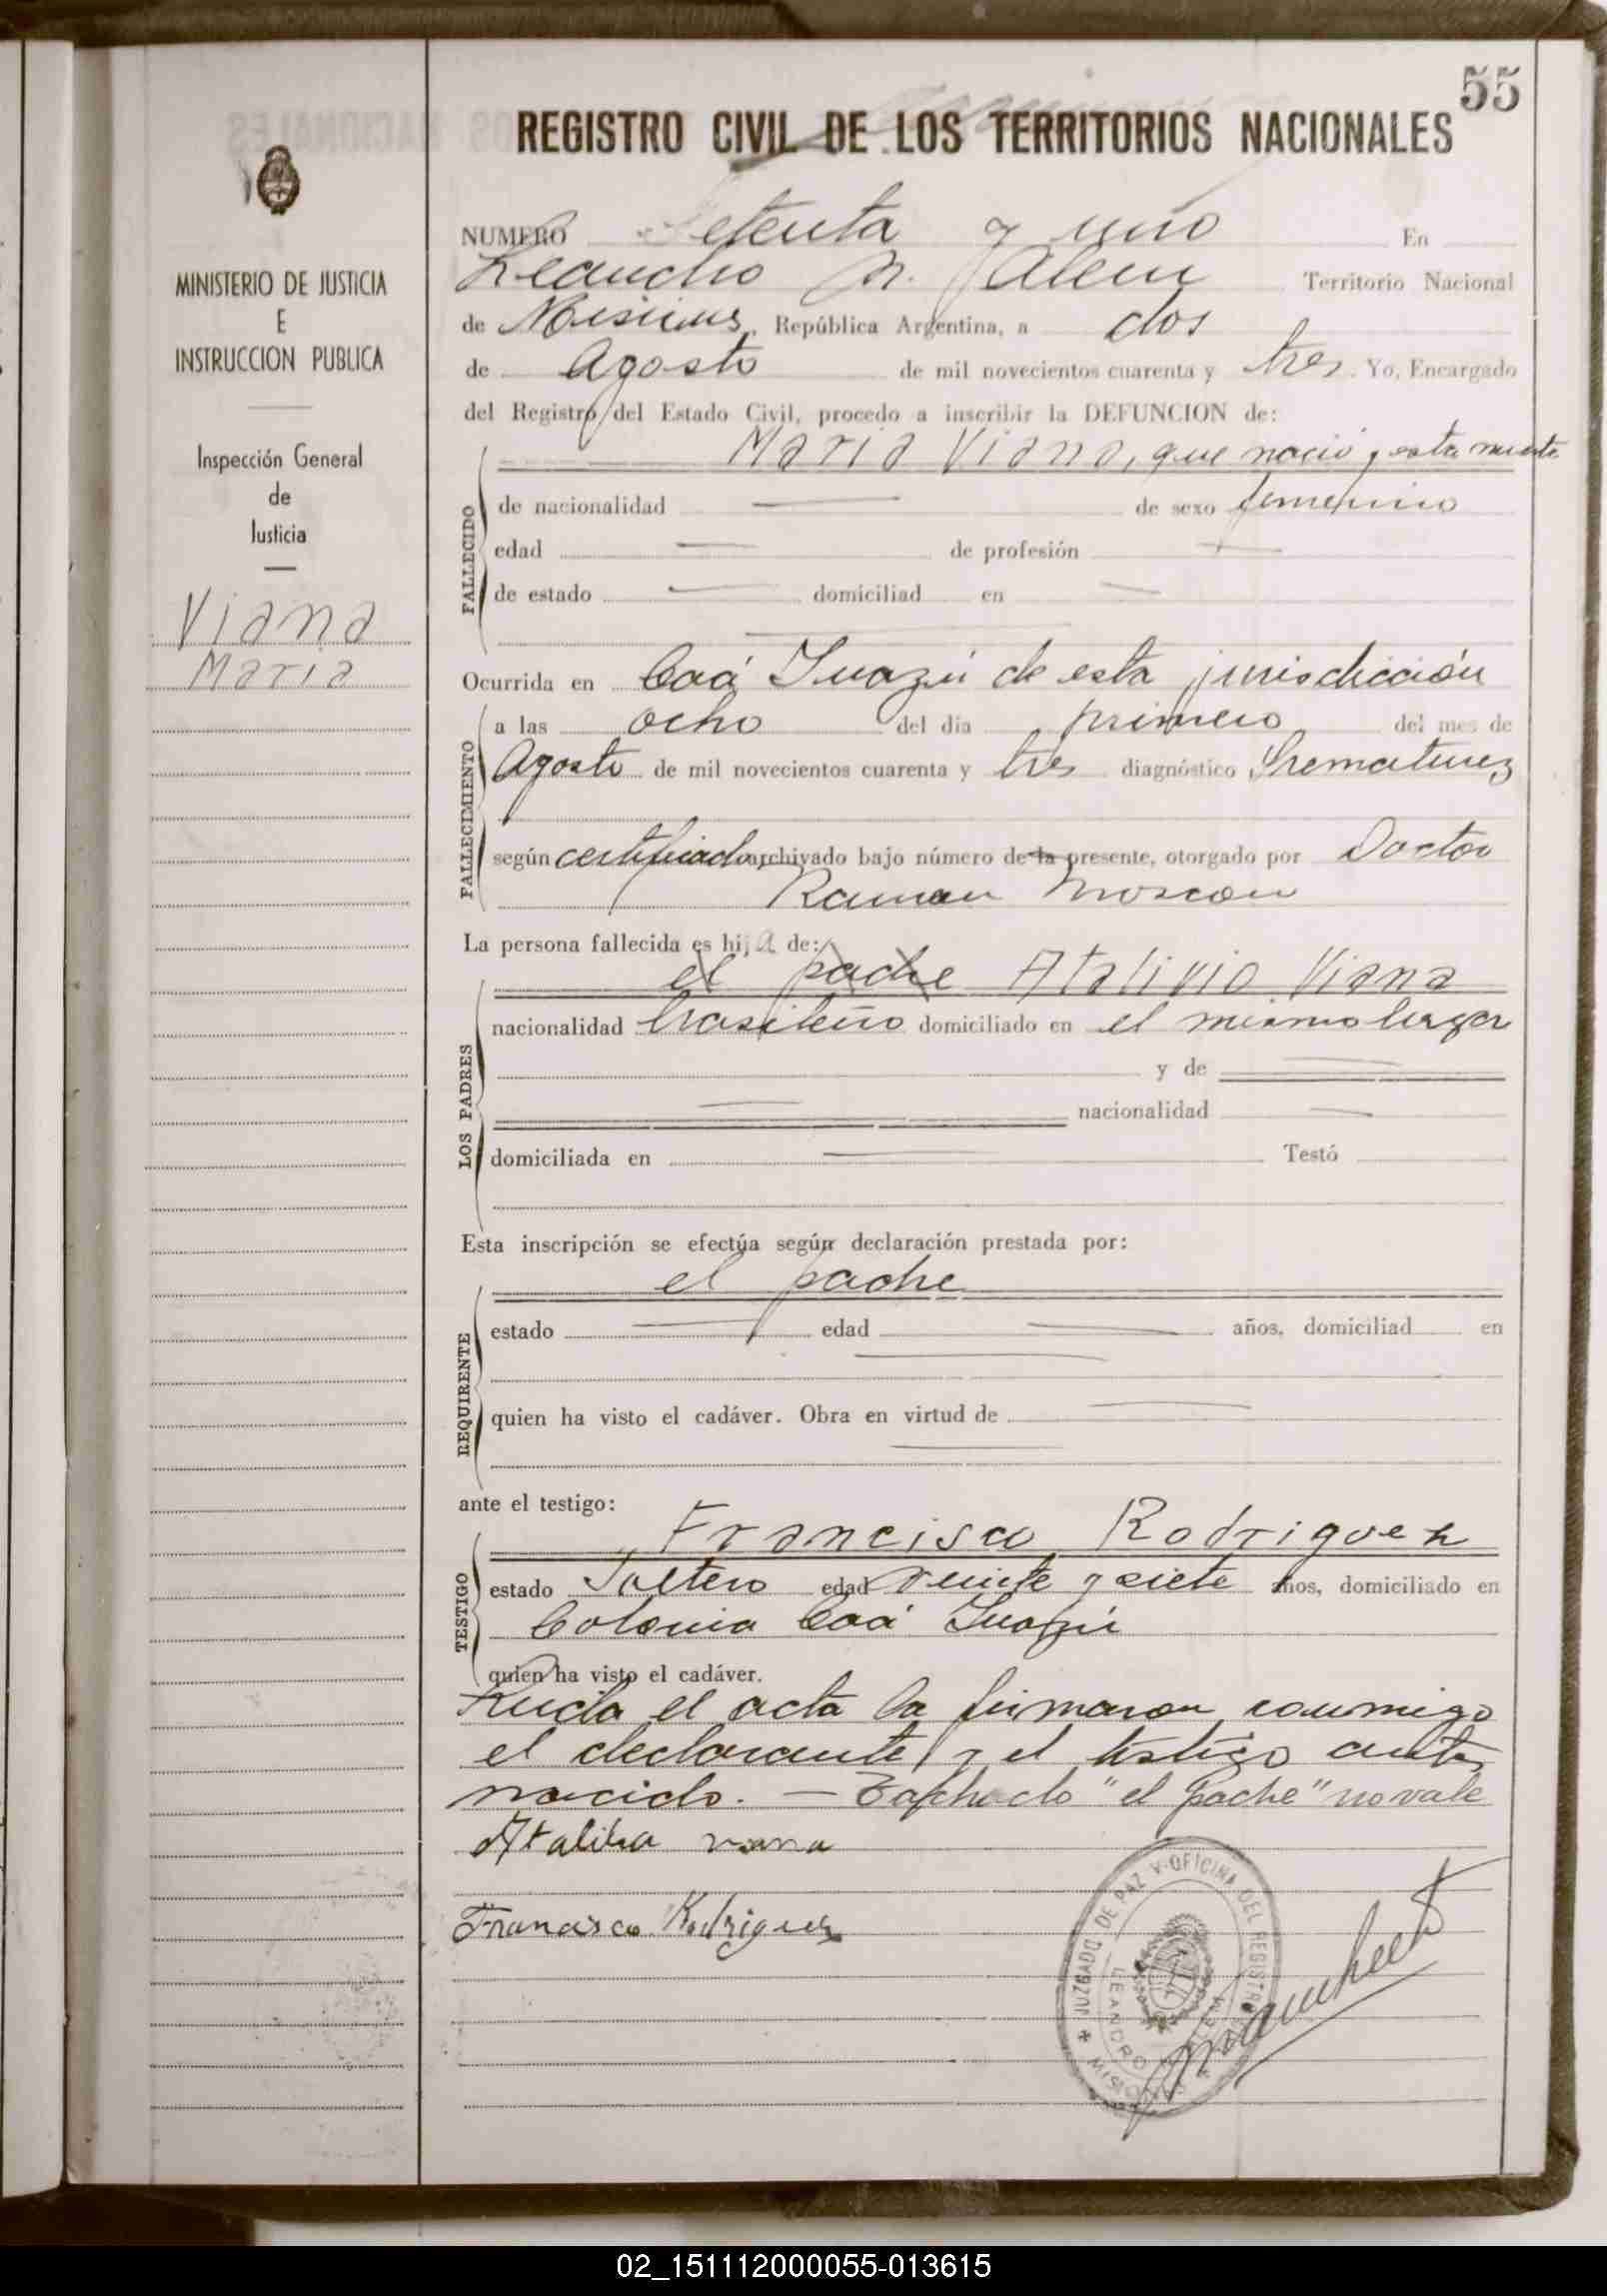 55
REGISTRO CIVIL DE LOS TERRITORIOS NACIONALES
MINISTERIO DE JUSTICIA
E
INSTRUCCION PUBLICA
Inspección General
de
Justicia
Viana
Maria
NUMERO Setenta y uno En
Leandro N. Alem Territorio Nacional
de Misiones, República Argentina, a dos
de Agosto de mil novecientos cuarenta y tres. Yo, Encargado
del Registro del Estado Civil, procedo a inscribir la DEFUNCION de:
FALLECIDO
Maria Viana, que nació y esta muerta
de nacionalidad — de sexo femenino
edad — de profesión —
de estado — domiciliad en —
Ocurrida en Caá Guazú de esta jurisdicción
FALLECIMIENTO
a las ocho del día primero del mes de
Agosto de mil novecientos cuarenta y tres diagnóstico Prematurez
según certificado archivado bajo número de la presente, otorgado por Doctor
Ramon
La persona fallecida es hija de:
LOS PADRES
el padre Atalivio Viana
nacionalidad brasileño domiciliado en el mismo lugar
y de —
— nacionalidad —
domiciliada en — Testó
Esta inscripción se efectúa según declaración prestada por:
REQUIRENTE
el padre
estado — edad — años, domiciliad en
—
quien ha visto el cadáver. Obra en virtud de —
—
ante el testigo:
TESTIGO
Francisco Rodriguez
estado Soltero edad veinte y siete años, domiciliado en
Colonia Caá Guazú
quien ha visto el cadáver.
Leida el acta la firmaron conmigo
el declarante y el testigo ante
nacido. — Tachado "el padre" no vale
Ataliba viana
Francisco Rodriguez
JUZGADO DE PAZ Y OFICINA DEL REGISTRO
LEANDRO N. ALEM
MISIONES
02_151112000055-013615